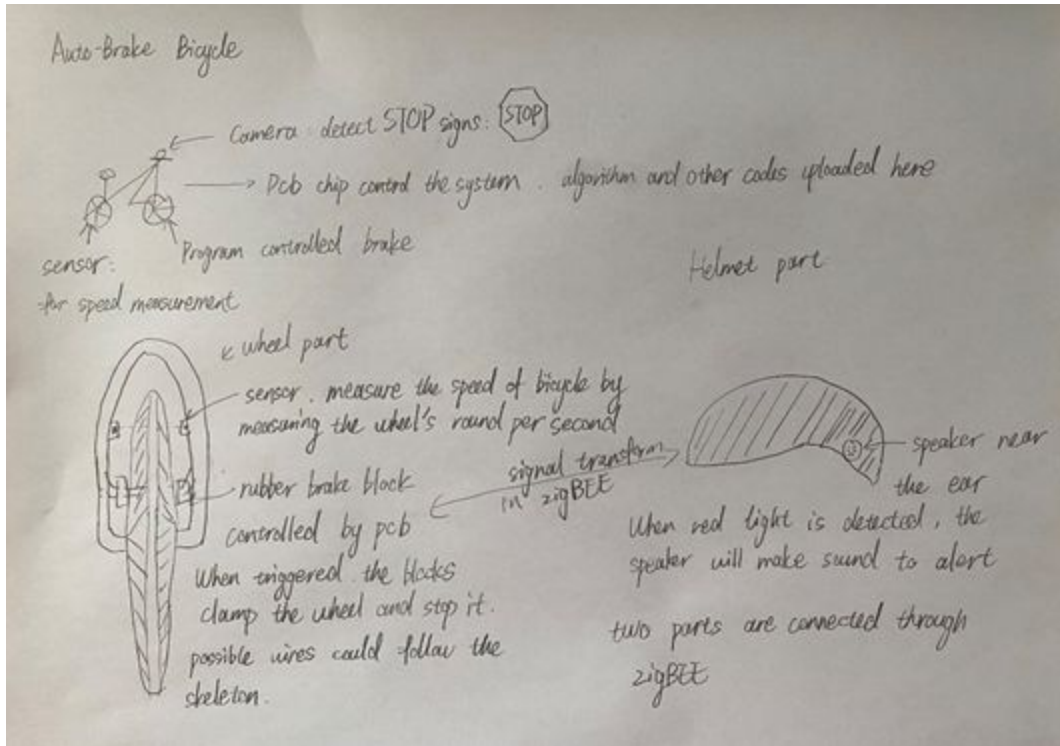 Auto-Brake Bicycle
Camera: detect STOP signs: STOP
Pcb chip control the system. algorithm and other codes uploaded here
Program controlled brake
sensor:
for speed measurement
Helmet part
wheel part
sensor. measure the speed of bicycle by
measuring the wheel's round per second
rubber brake block
controlled by pcb
When triggered the blocks
clamp the wheel and stop it.
possible wires could follow the
skeleton.
signal transform
in zigBEE
speaker near
the ear
When red light is detected, the
speaker will make sound to alert
two parts are connected through
zigBEE